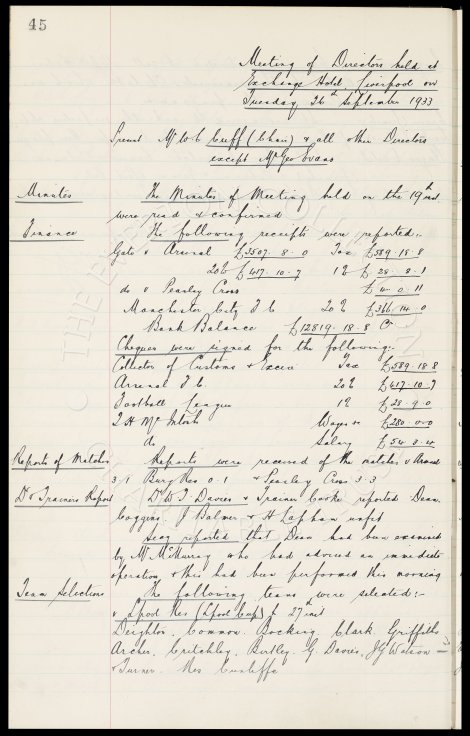 45
Meeting of Directors held at
Exchange Hotel, Liverpool on
Tuesday, 26th September 1933
Present Mr W C Cuff (Chair) & all other Directors
except Mr Geo Evans
Minutes The Minutes of Meeting held on the 19th inst
were read & confirmed
Finance The following receipts were reported:-
Gate v Arsenal £3507. 8. 0 Tax £589. 18. 8
20% £417. 10. 7 1% £ 28. 9. 1
do v Peasley Cross £4. 0. 11
Manchester City F C 20% £366. 14. 0
Bank Balance £12819. 18. 8 Cr
Cheques were signed for the following:-
Collector of Customs & Excise Tax £589. 18 8
Arsenal F C. 20% £417. 10. 7
Football League 1% £28. 9. 0
T H McIntosh Wages &c £280. 0. 0
do Salary £54. 3. 4
Reports of Matches Reports were received of the matches v Arsenal
3.1 Bury Res 0.1 & Peasley Cross 3.3
Dr & Trainers Report Dr D J Davies & Trainer Cooke reported Dean
Coggins, J Balmer & H Lapham unfit
Secy reported that Dean had been examined
by Mr McMurray who had advised an immediate
operation, & this had been performed this morning
Team Selections The following teams were selected:-
v L'pool Res (L'pool Cup) h 27th inst
Deighton, Common, Bocking, Clark, Griffiths,
Archer, Critchley, Birtley, G Davies, J G Watson
& Turner. Res Cunliffe